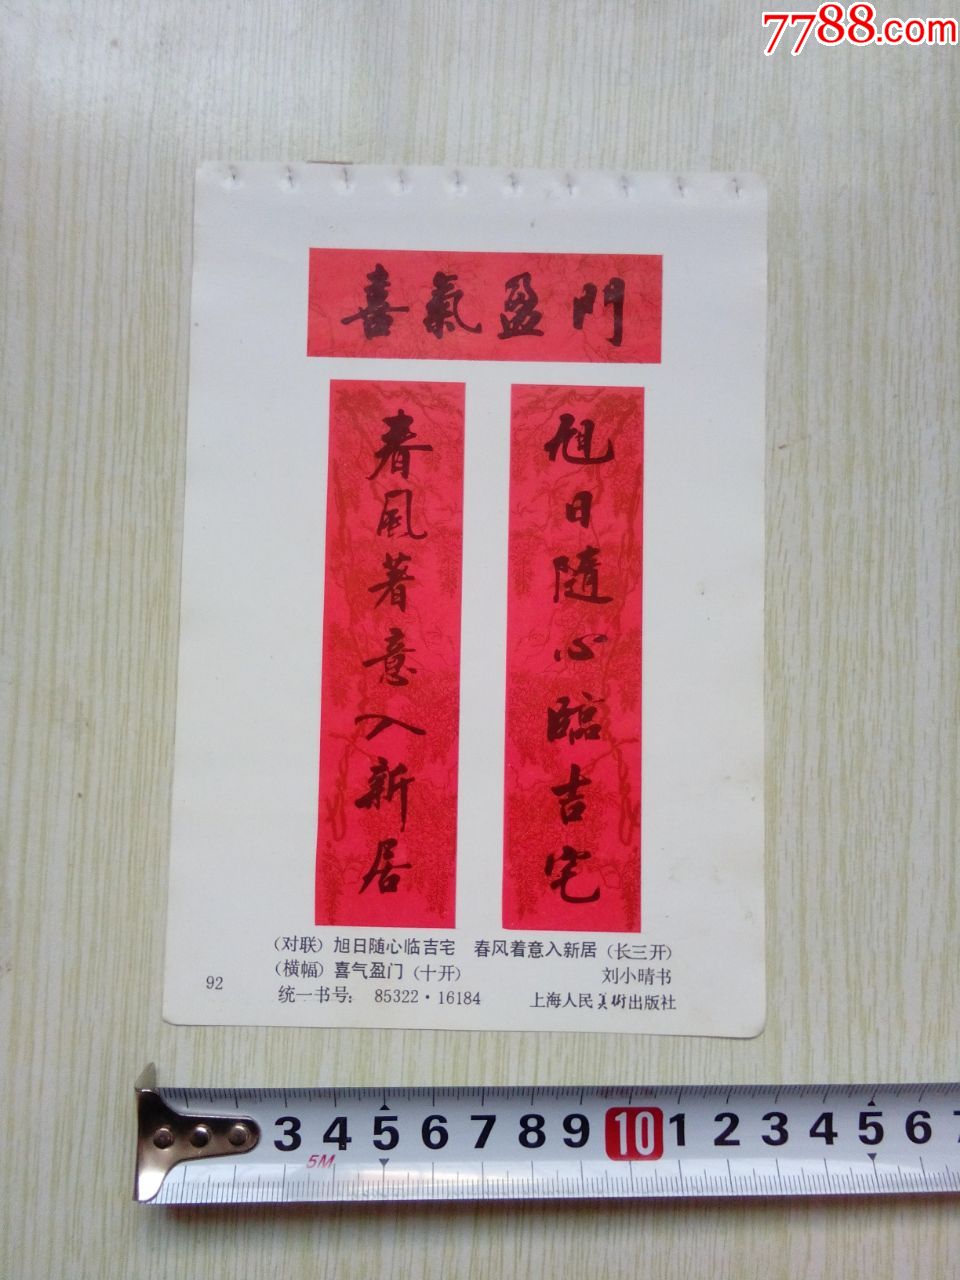 7788.com
喜氣盈門
旭日隨心臨吉宅
春風著意入新居
(对联) 旭日随心临吉宅 春风着意入新居 (长三开)
(横幅) 喜气盈门 (十开) 刘小晴书
92
统一书号: 85322·16184 上海人民美術出版社
3 4 5 6 7 8 9 10 1 2 3 4 5 6 7
5M